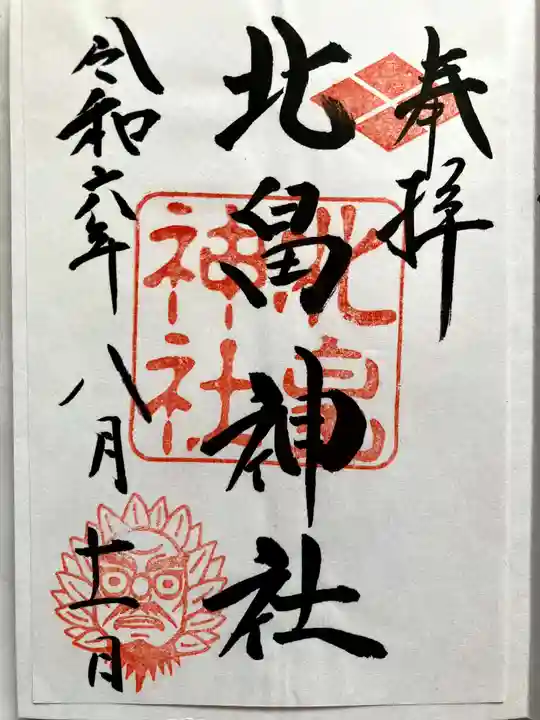 奉拝
北畠神社
北畠
神社
令和六年八月十一日